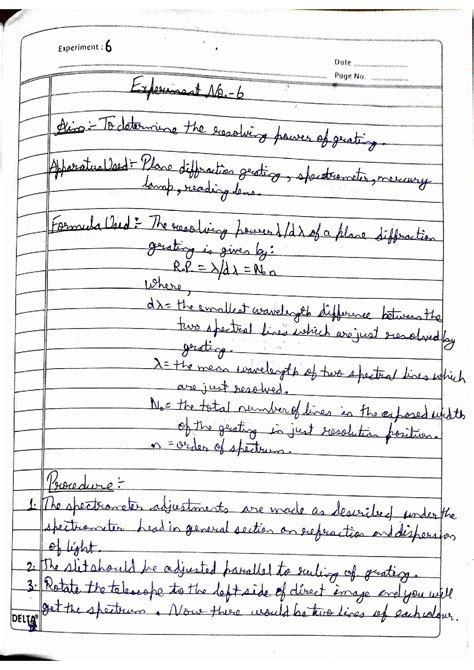 Experiment : 6
Date
Page No.
Experiment No.-6
Aim :- To determine the resolving power of grating.
Apparatus Used :- Plane diffraction grating, spectrometer, mercury
lamp, reading lens.
Formula Used :- The resolving power λ/dλ of a plane diffraction
grating is given by:
R.P. = λ/dλ = N₀n
where,
dλ = the smallest wavelength difference between the
two spectral lines which are just resolved by
grating.
λ = the mean wavelength of two spectral lines which
are just resolved.
N₀ = the total number of lines in the exposed width
of the grating in just resolution position.
n = order of spectrum.
Procedure :-
1. The spectrometer adjustments are made as described under the
spectrometer head in general section on refraction and dispersion
of light.
2. The slit should be adjusted parallel to ruling of grating.
3. Rotate the telescope to the left side of direct image and you will
get the spectrum. Now there would be two lines of each colour.
DELTA